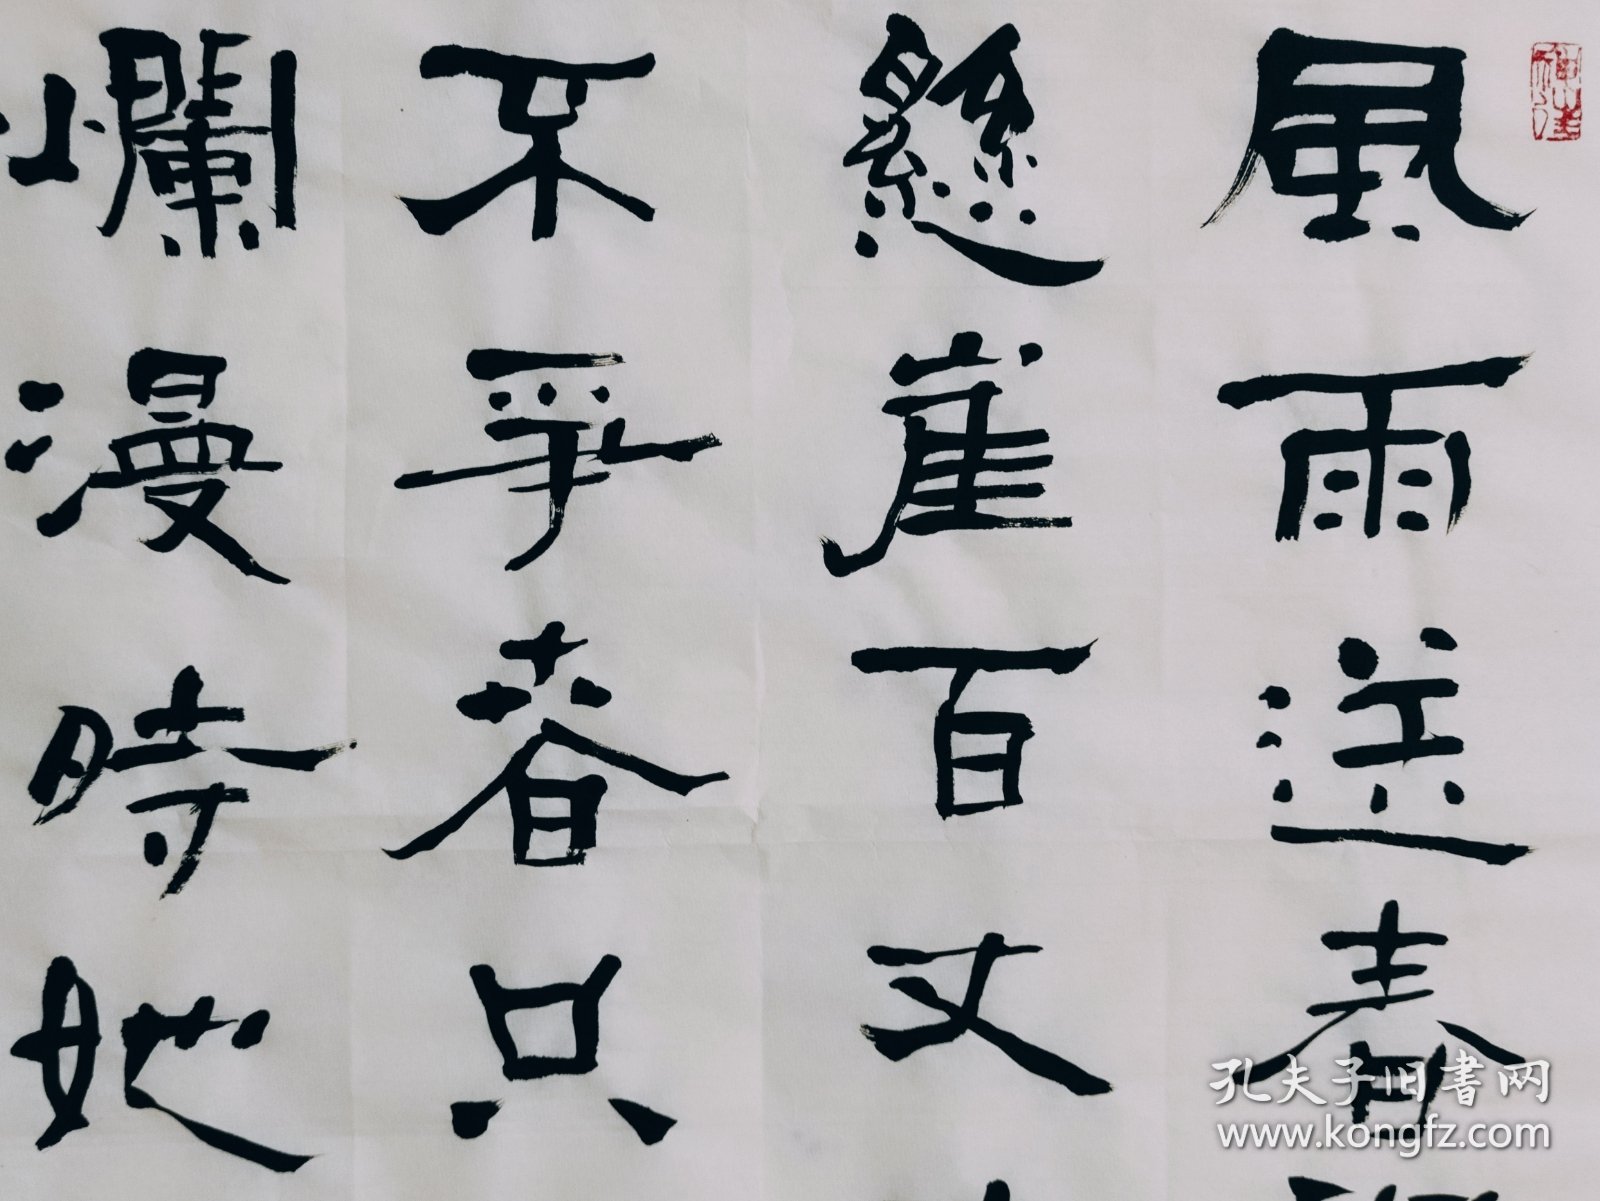 風雨送春
懸崖百丈
不爭春只
爛漫時她
孔夫子旧書网
www.kongfz.com